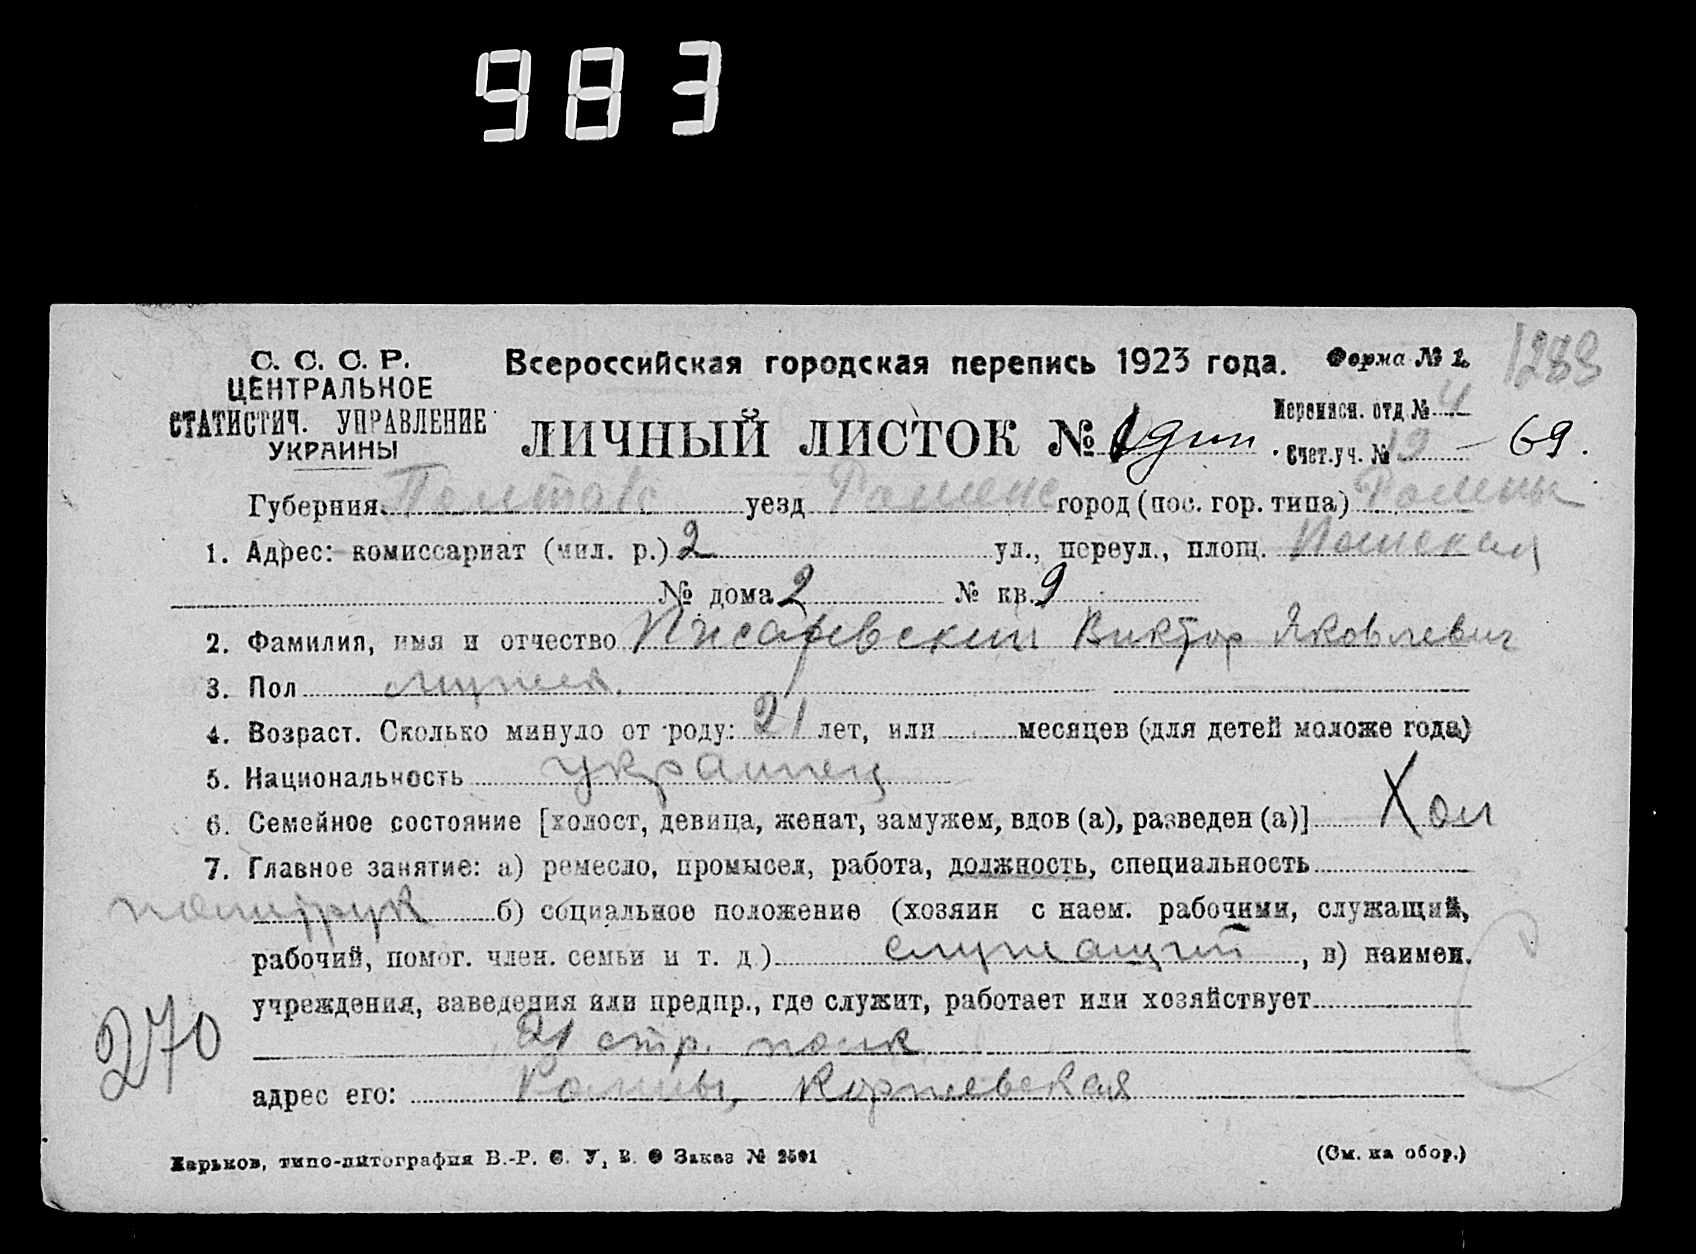 983
С. С. С. Р.
ЦЕНТРАЛЬНОЕ
СТАТИСТИЧ. УПРАВЛЕНИЕ
УКРАИНЫ
Всероссийская городская перепись 1923 года. Форма № 1.
1283
ЛИЧНЫЙ ЛИСТОК № 1
Переписн. отд. № 4
Счет. уч. № 19 – 69.
Губерния Полтавс уезд Роменс город (пос. гор. типа) Ромны
1. Адрес: комиссариат (мил. р.) 2 ул., переул., площ.
№ дома 2 № кв. 9
2. Фамилия, имя и отчество Писаревский Виктор Яковлевич
3. Пол мужск.
4. Возраст. Сколько минуло от роду: 21 лет, или месяцев (для детей моложе года)
5. Национальность украинец
6. Семейное состояние [холост, девица, женат, замужем, вдов (а), разведен (а)] Хол
7. Главное занятие: а) ремесло, промысел, работа, должность, специальность
политрук б) социальное положение (хозяин с наем. рабочими, служащий,
рабочий, помог. член. семьи и т. д.) служащий, в) наимен.
учреждения, заведения или предпр., где служит, работает или хозяйствует
270
21 стр. полк
адрес его: Ромны, Коржевская
Харьков, типо-литография В.-Р. С. У, В. О Заказ № 2501
(См. на обор.)